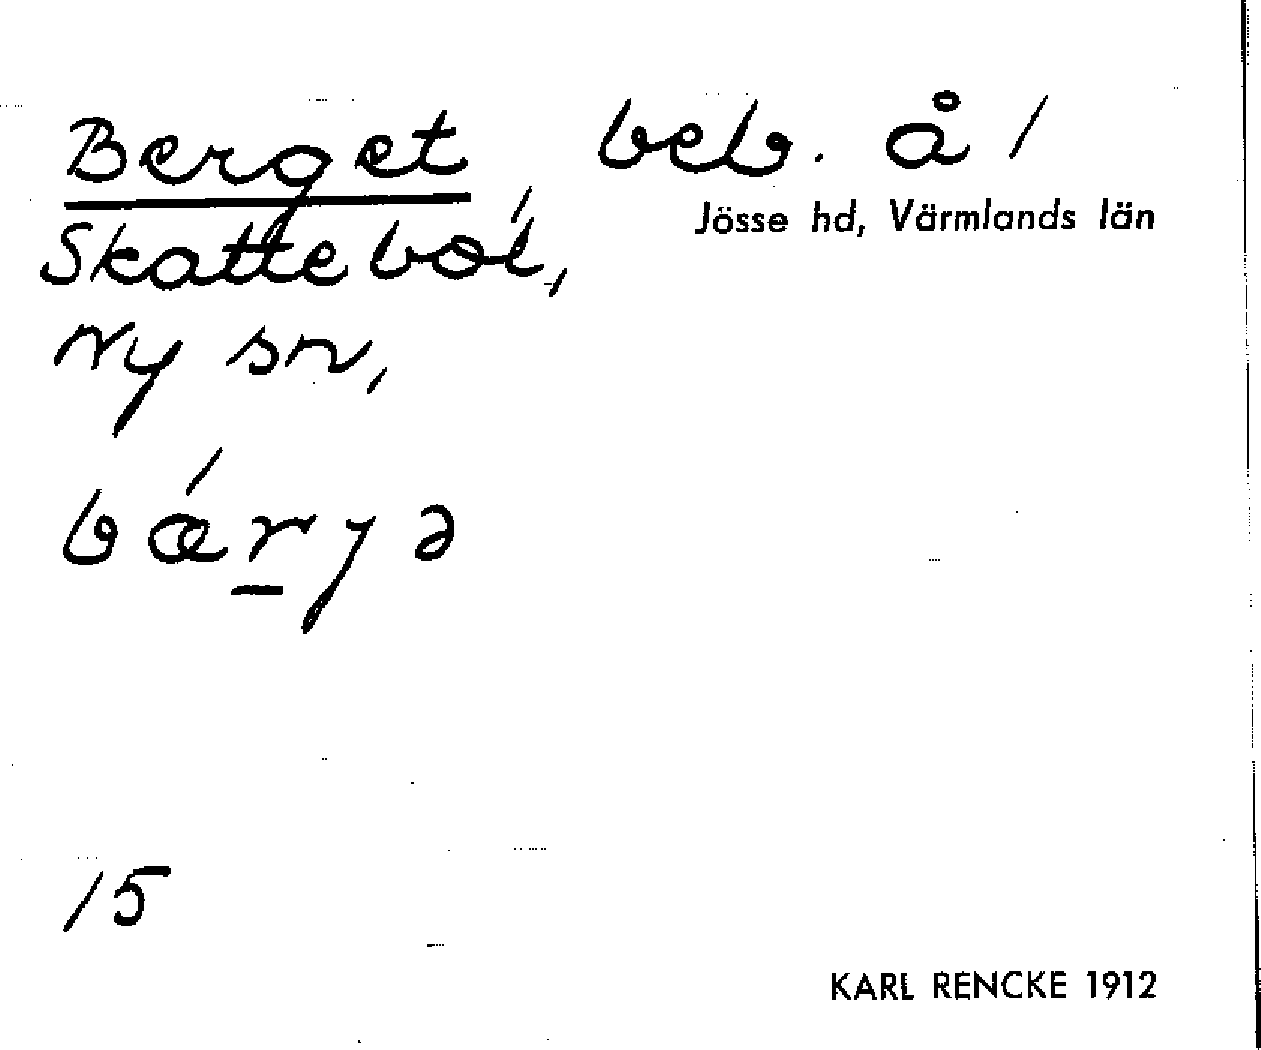 Berget, beb. å /
Jösse hd, Värmlands län
Skattebol,
Ny sn,
bǽr̲yə
15
KARL RENCKE 1912